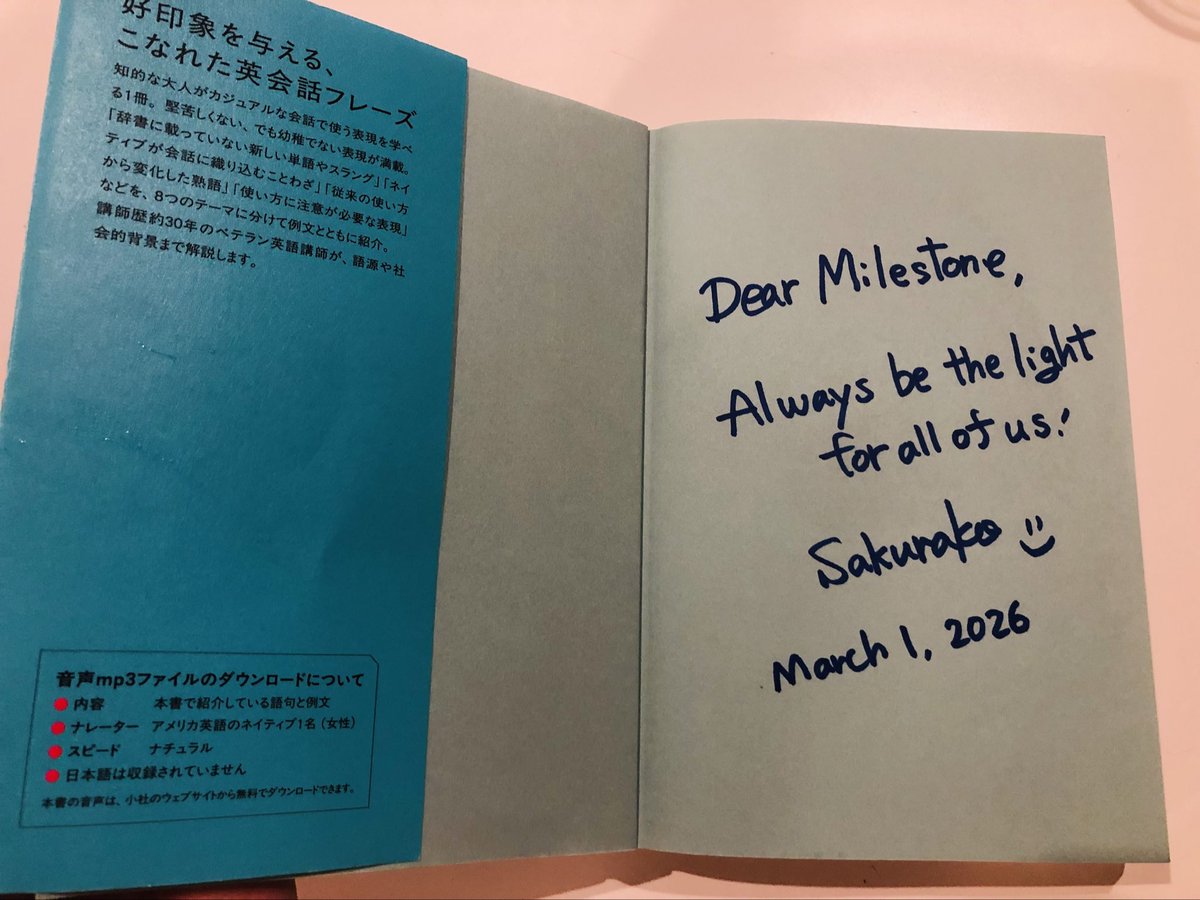 好印象を与える、
こなれた英会話フレーズ
知的な大人がカジュアルな会話で使う表現を学べ
る1冊。堅苦しくない、でも幼稚でない表現が満載。
「辞書に載っていない新しい単語やスラング」「ネイ
ティブが会話に織り込むことわざ」「従来の使い方
から変化した熟語」「使い方に注意が必要な表現」
などを、8つのテーマに分けて例文とともに紹介。
講師歴約30年のベテラン英語講師が、語源や社
会的背景まで解説します。
音声mp3ファイルのダウンロードについて
●内容 本書で紹介している語句と例文
●ナレーター アメリカ英語のネイティブ1名(女性)
●スピード ナチュラル
●日本語は収録されていません
本書の音声は、小社のウェブサイトから無料でダウンロードできます。
Dear Milestone,
Always be the light
for all of us!
Sakurako
March 1, 2026